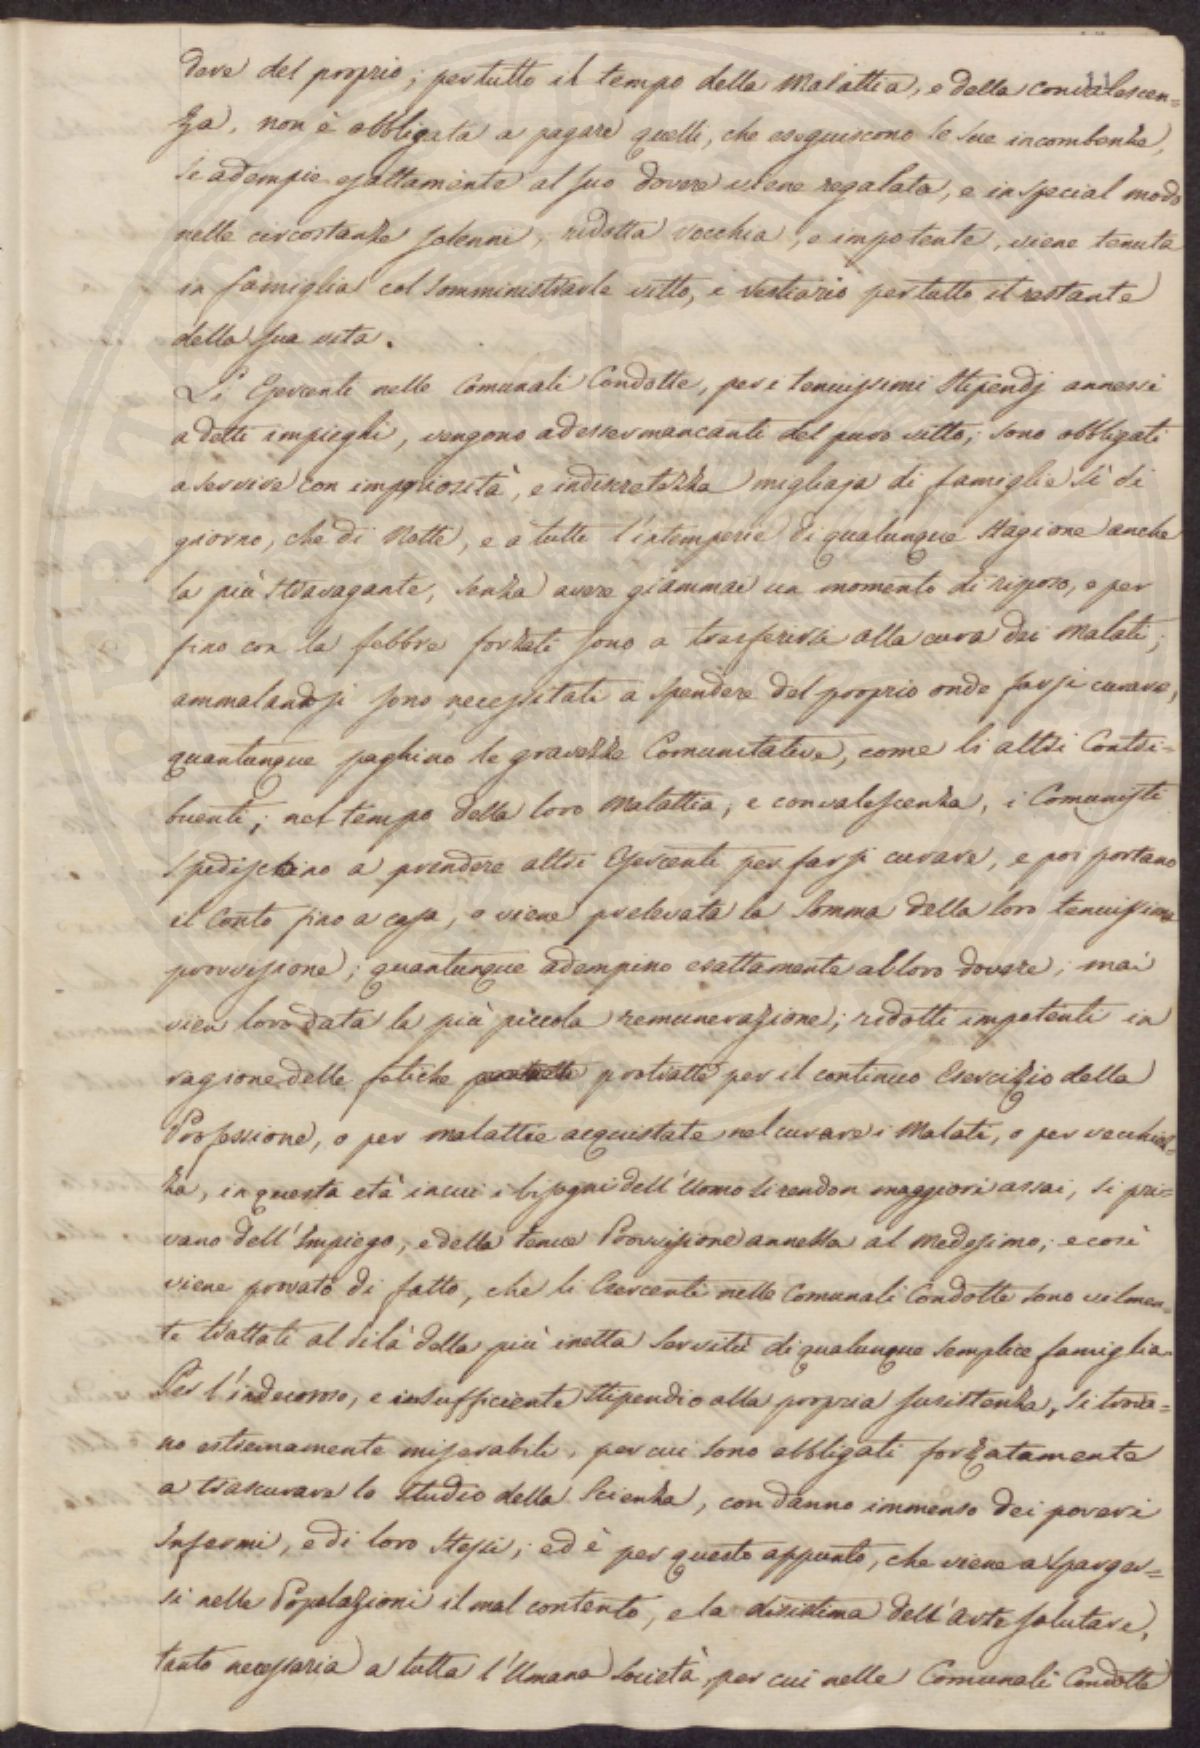 dere del proprio; per tutto il tempo della Malattia, e della convalescen=
za, non è obbligata a pagare quelli, che eseguiscono le sue incombenze,
se adempie esattamente al suo dovere viene regalata, e in special modo
nelle circostanze solenni; ridotta vecchia, e impotente, viene tenuta
in famiglia col somministrarle vitto, e vestiario per tutto il restante
della sua vita.
Li Esercenti nelle Comunali Condotte, per i tenuissimi Stipendj annessi
a detti impieghi, vengono ad esser mancanti del puro vitto; sono obbligati
a servire con imperiosità, e indiscretezza migliaja di famiglie sì di
giorno, che di Notte, e a tutte l'intemperie di qualunque Stagione anche
la più stravagante, senza avere giammai un momento di riposo, e per
fino con la febbre forzati sono a trasferirsi alla cura dei Malati;
ammalandosi sono necessitati a spendere del proprio onde farsi curare,
quantunque paghino le gravezze Comunitative, come li altri Contri=
buenti; nel tempo della loro Malattia, e convalescenza, i Comunisti
spediscono a prendere altri Esercenti per farsi curare, e poi portano
il Conto fino a casa, e viene prelevata la somma della loro tenuissima
provvisione; quantunque adempino esattamente al loro dovere, mai
vien loro data la più piccola remunerazione; ridotti impotenti in
ragione delle fatiche protratte per il continuo Esercizio della
Professione, o per malattie acquistate nel curare i Malati, o per vecchiez=
za, in questa età in cui i bisogni dell'Uomo si rendon maggiori assai, si pri=
vano dell'Impiego, e della tenue Provvisione annessa al Medesimo; e così
viene provato di fatto, che li Esercenti nelle Comunali Condotte sono vilmen=
te trattati al di là della più inetta servitù di qualunque semplice famiglia.
Per l'indecoroso, e insufficiente Stipendio alla propria sussistenza, si trova=
no estremamente miserabili, per cui sono obbligati forzatamente
a trascurare lo studio della Scienza, con danno immenso dei poveri
Infermi, e di loro Stessi; ed è per questo appunto, che viene a sparger=
si nelle Popolazioni il mal contento, e la disistima dell'Arte salutare,
tanto necessaria a tutta l'Umana Società, per cui nelle Comunali Condotte